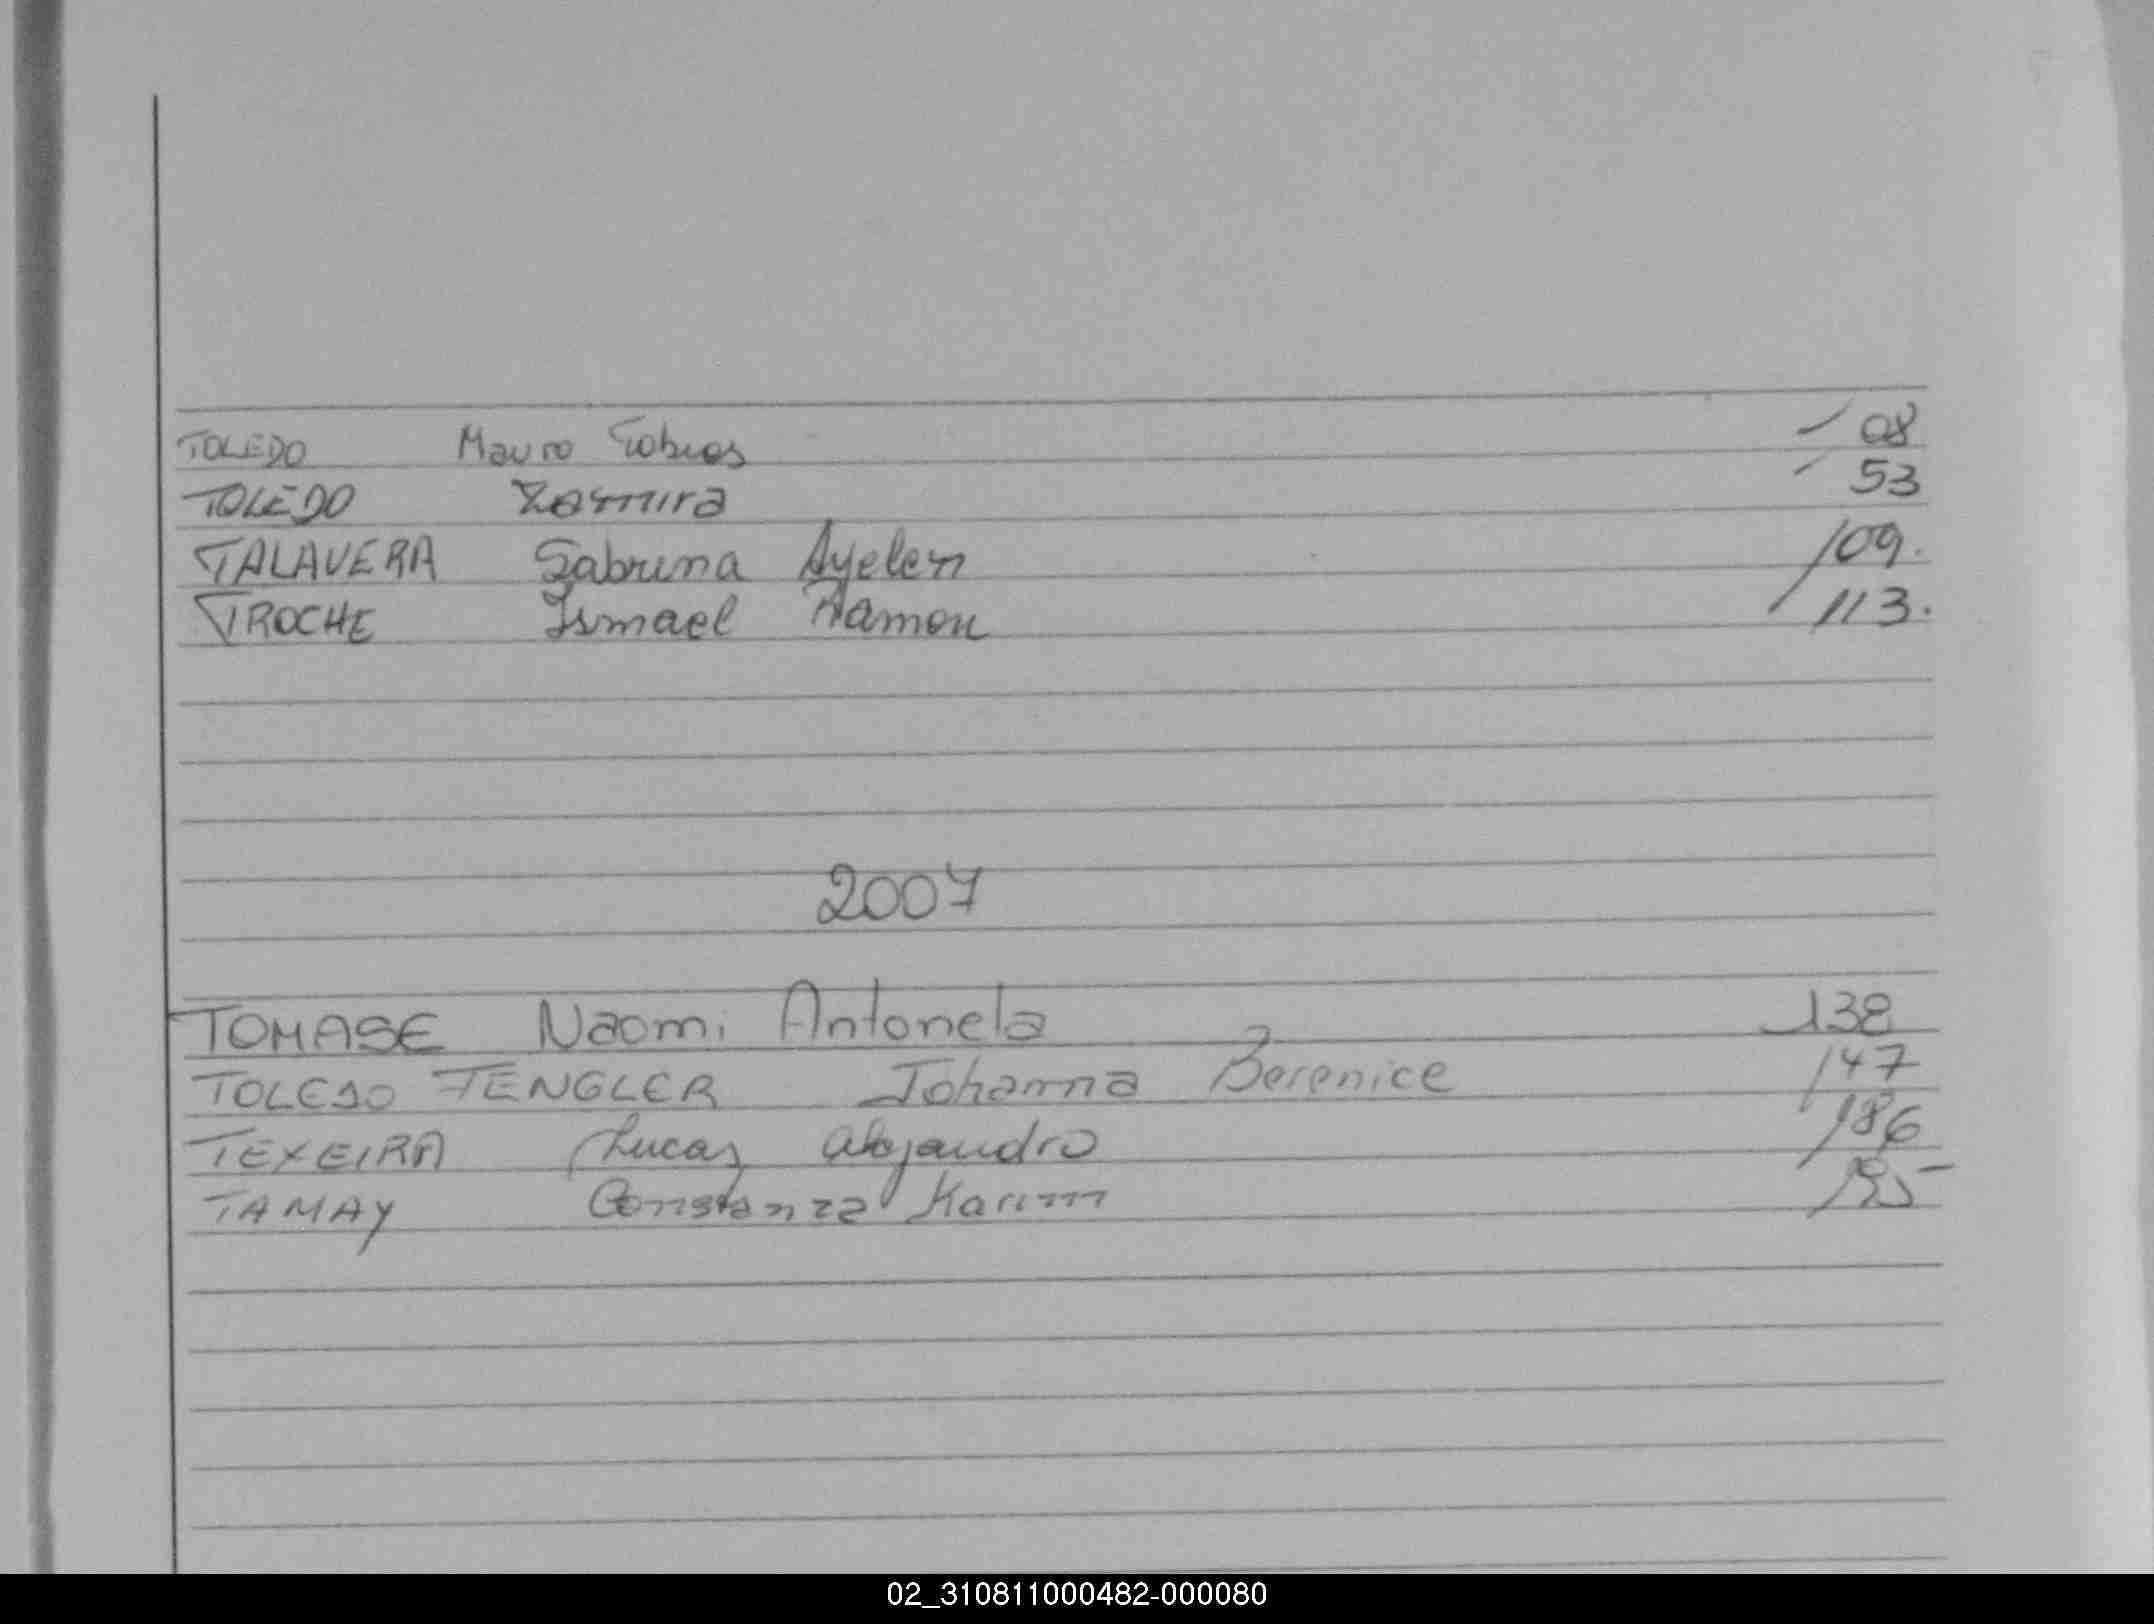 TOLEDO Mauro Tobias 08
TOLEDO Zamira 53
TALAVERA Sabrina Ayelen 109.
TROCHE Ismael Ramon 113.
2007
TOMASE Naomi Antonela 138
TOLEDO TENGLER Johanna Berenice 147
TEXEIRA Lucas Alejandro 186
TAMAY Constanza Karim
02_310811000482-000080